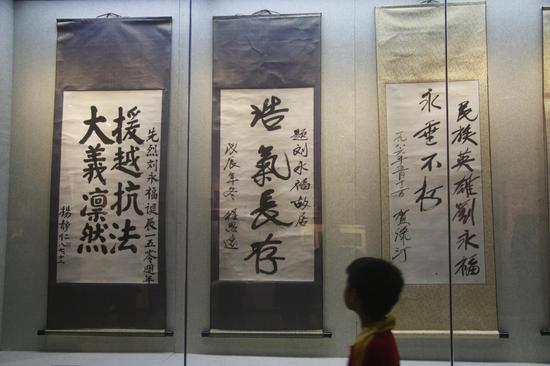 先烈刘永福誕辰一五零週年
援越抗法
大義凜然
楊靜仁
题刘永福故居
浩氣長存
戊辰年冬 程思遠
民族英雄劉永福
永垂不朽